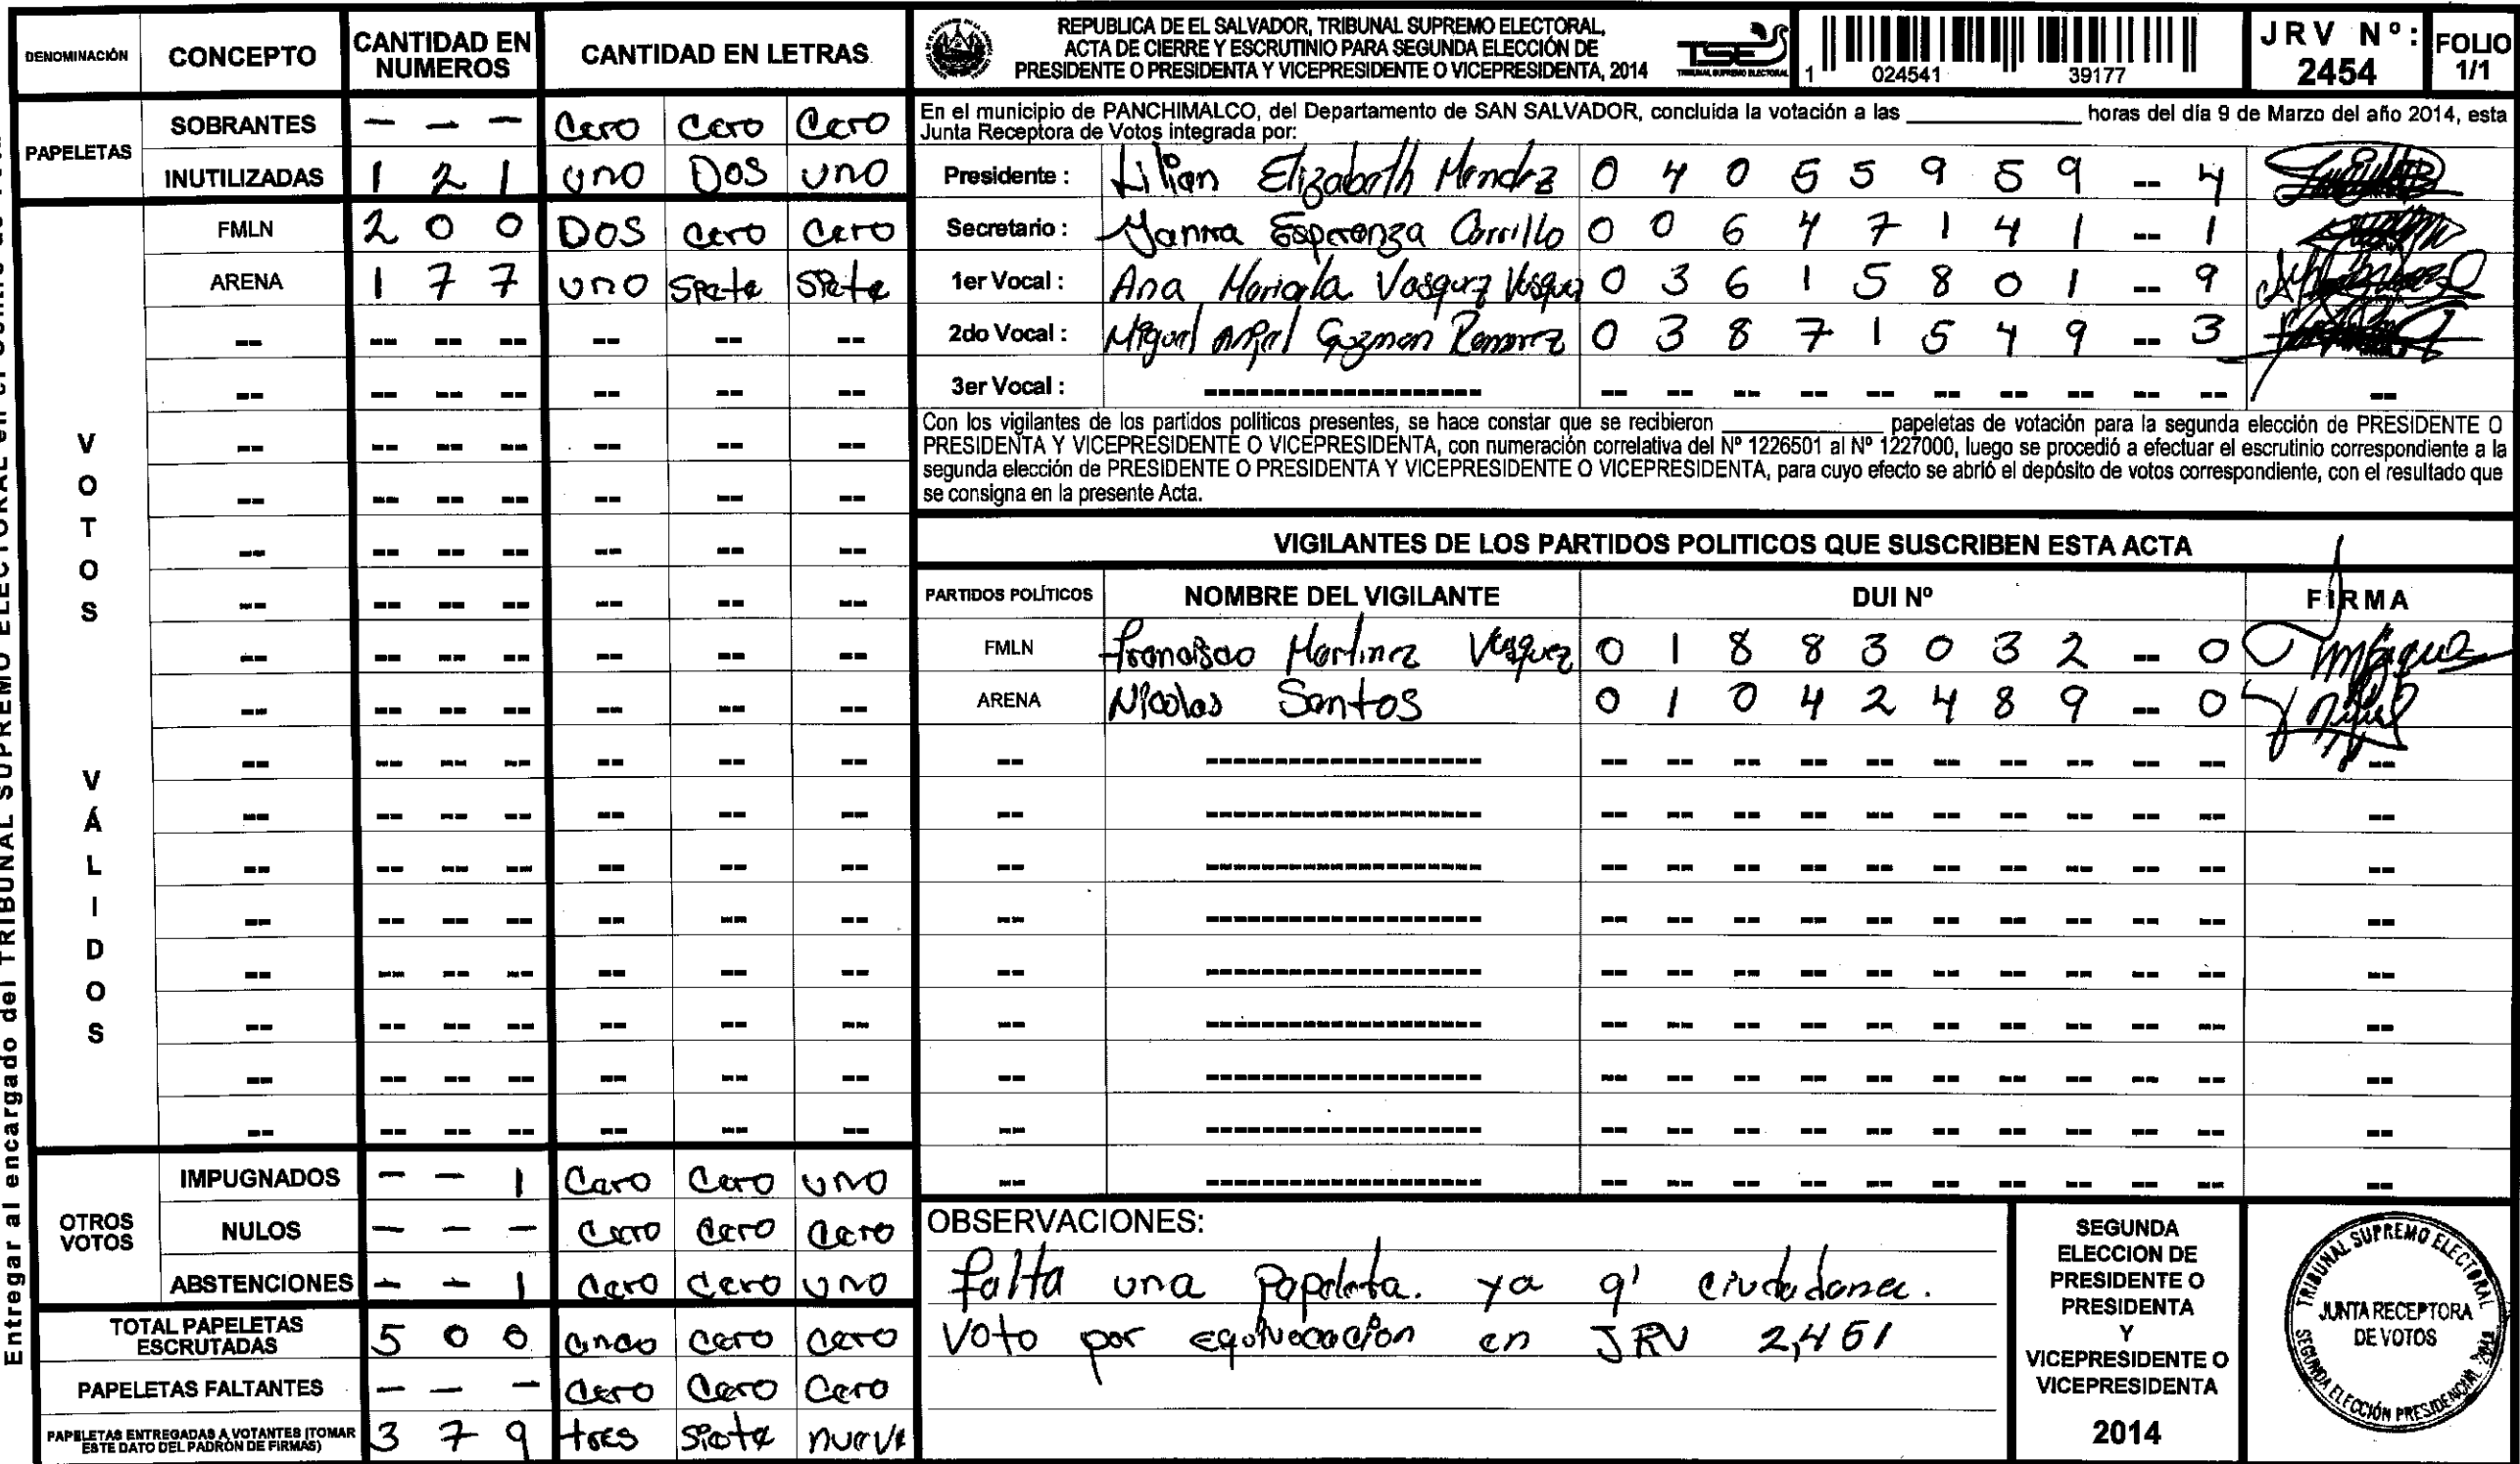 Entregar al encargado del TRIBUNAL SUPREMO ELECTORAL en el
DENOMINACIÓN CONCEPTO CANTIDAD EN NUMEROS CANTIDAD EN LETRAS
PAPELETAS
SOBRANTES - - - Cero Cero Cero
INUTILIZADAS 1 2 1 uno Dos uno
VOTOS VÁLIDOS
FMLN 2 0 0 DOS cero Cero
ARENA 1 7 7 uno Siete Siete
OTROS VOTOS
IMPUGNADOS - - 1 Cero Cero uno
NULOS - - - Cero Cero Cero
ABSTENCIONES - - 1 Cero Cero uno
TOTAL PAPELETAS ESCRUTADAS 5 0 0 Cinco Cero Cero
PAPELETAS FALTANTES - - - Cero Cero Cero
PAPELETAS ENTREGADAS A VOTANTES (TOMAR ESTE DATO DEL PADRÓN DE FIRMAS) 3 7 9 tres Siete nueve
REPUBLICA DE EL SALVADOR, TRIBUNAL SUPREMO ELECTORAL,
ACTA DE CIERRE Y ESCRUTINIO PARA SEGUNDA ELECCIÓN DE
PRESIDENTE O PRESIDENTA Y VICEPRESIDENTE O VICEPRESIDENTA, 2014
TSE
TRIBUNAL SUPREMO ELECTORAL
1 024541 39177
JRV Nº: 2454
FOLIO 1/1
En el municipio de PANCHIMALCO, del Departamento de SAN SALVADOR, concluida la votación a las ________ horas del día 9 de Marzo del año 2014, esta
Junta Receptora de Votos integrada por:
Presidente : Lilian Elizabeth Mendez 0 4 0 5 5 9 5 9 -- 4
Secretario : Esperenza Carrillo 0 0 6 4 7 1 4 1 -- 1
1er Vocal : Ana Mariela Vasquez Vasquez 0 3 6 1 5 8 0 1 -- 9
2do Vocal : Miguel Angel Guzman Ramirez 0 3 8 7 1 5 4 9 -- 3
3er Vocal :
Con los vigilantes de los partidos politicos presentes, se hace constar que se recibieron ________ papeletas de votación para la segunda elección de PRESIDENTE O
PRESIDENTA Y VICEPRESIDENTE O VICEPRESIDENTA, con numeración correlativa del Nº 1226501 al Nº 1227000, luego se procedió a efectuar el escrutinio correspondiente a la
segunda elección de PRESIDENTE O PRESIDENTA Y VICEPRESIDENTE O VICEPRESIDENTA, para cuyo efecto se abrió el depósito de votos correspondiente, con el resultado que
se consigna en la presente Acta.
VIGILANTES DE LOS PARTIDOS POLITICOS QUE SUSCRIBEN ESTA ACTA
PARTIDOS POLÍTICOS NOMBRE DEL VIGILANTE DUI Nº FIRMA
FMLN Francisco Martinez Vasquez 0 1 8 8 3 0 3 2 -- 0
ARENA Nicolas Santos 0 1 0 4 2 4 8 9 -- 0
OBSERVACIONES:
falta una Papeleta. ya q' ciudadana.
Voto por equivocacion en JRV 2,451
SEGUNDA
ELECCION DE
PRESIDENTE O
PRESIDENTA
Y
VICEPRESIDENTE O
VICEPRESIDENTA
2014
TRIBUNAL SUPREMO ELECTORAL
JUNTA RECEPTORA
DE VOTOS
SEGUNDA ELECCIÓN PRESIDENCIAL 2014